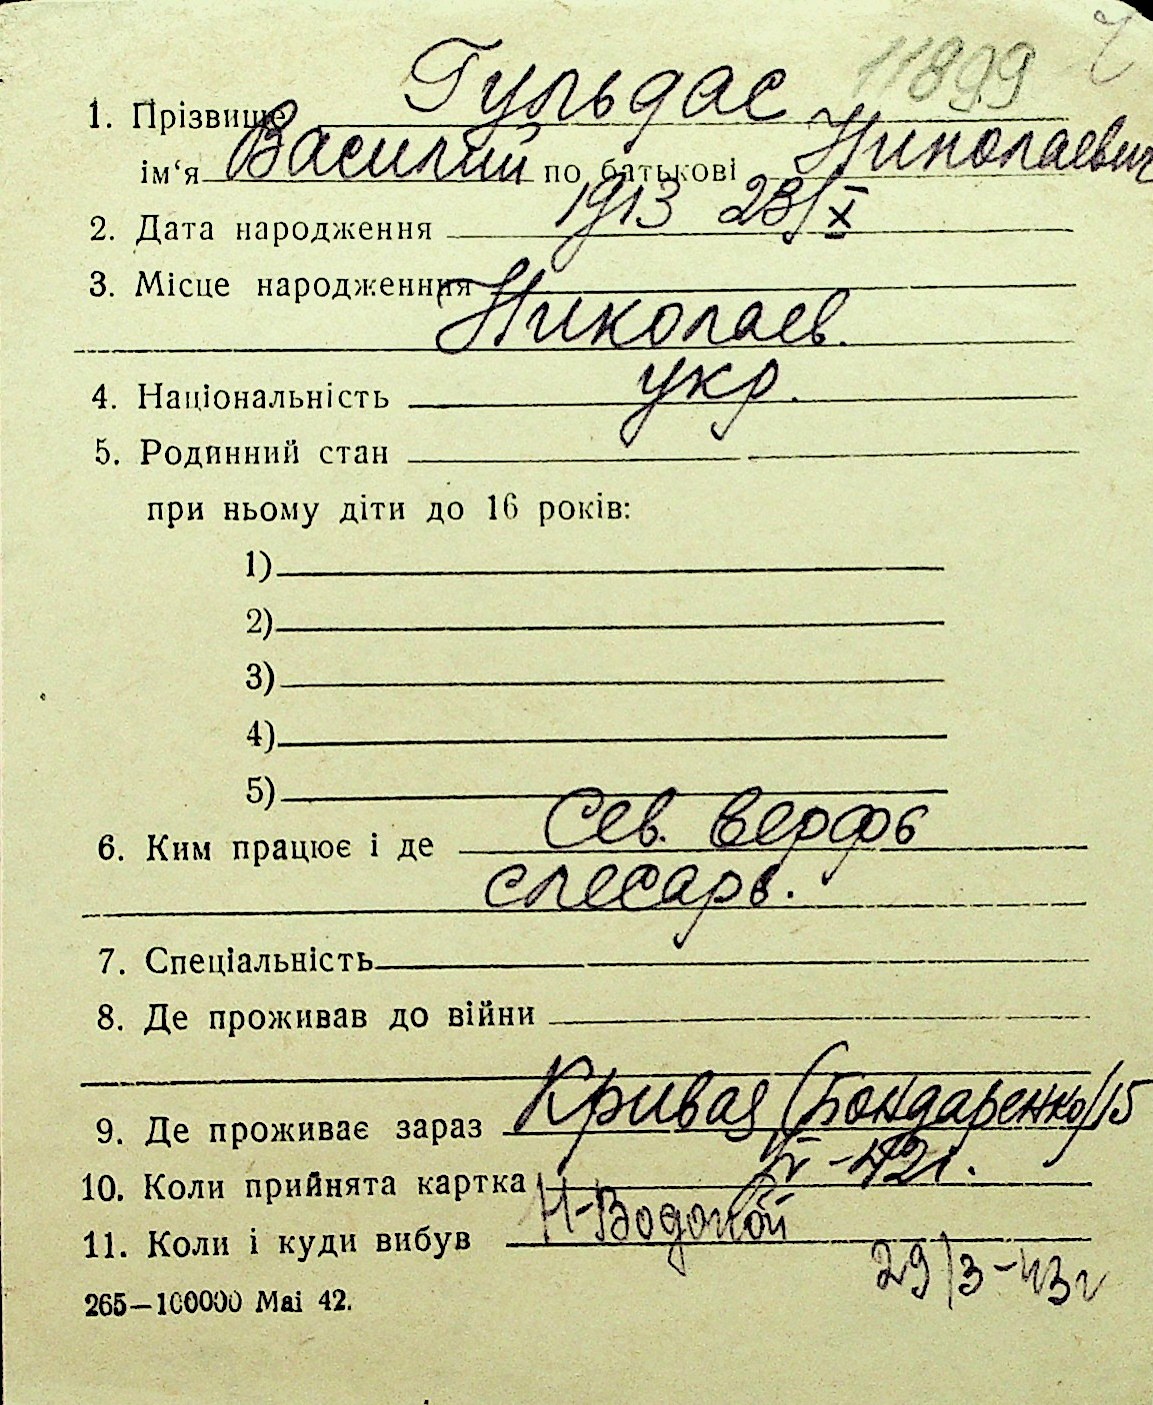 11899
1. Прізвище Гульдас
ім‘я Василий по батькові Николаевич
2. Дата народження 1913 23/X
3. Місце народженння
Николаев.
4. Національність укр.
5. Родинний стан
при ньому діти до 16 років:
1)
2)
3)
4)
5)
6. Ким працює і де Сев. верфь
слесарь.
7. Спеціальність
8. Де проживав до війни
9. Де проживає зараз Кривая (Бондаренко) 15
10. Коли прийнята картка IV-42г.
11. Коли і куди вибув Н-Водопой
29/3-43г
265—100000 Mai 42.